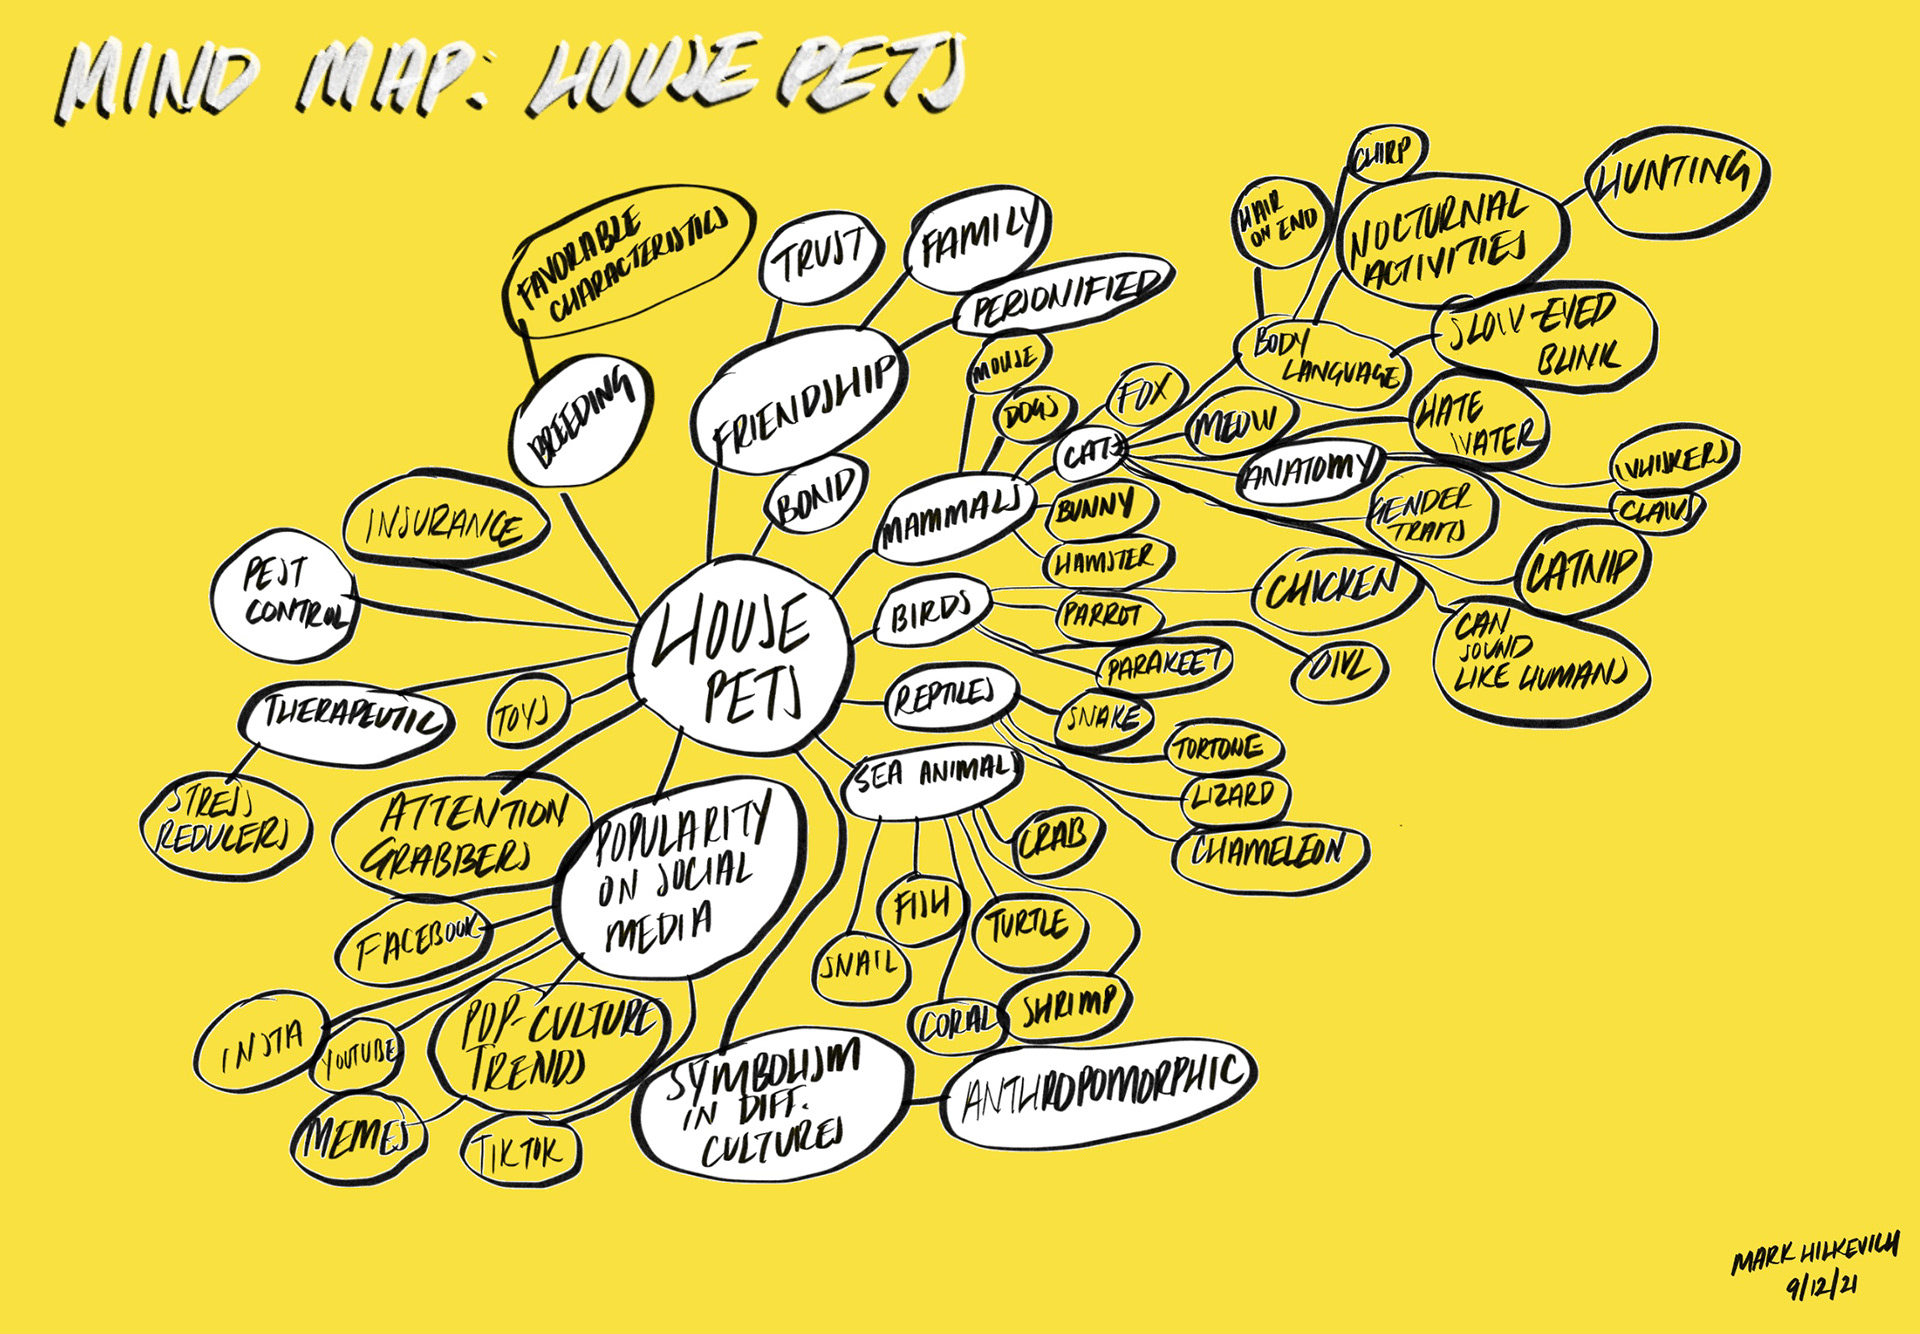 MIND MAP: HOUSE PETS
FAVORABLE
CHARACTERISTICS
BREEDING
TRUST
FAMILY
PERSONIFIED
FRIENDSHIP
BOND
INSURANCE
PEST
CONTROL
THERAPEUTIC
STRESS
REDUCERS
TOYS
HOUSE
PETS
ATTENTION
GRABBERS
POPULARITY
ON SOCIAL
MEDIA
FACEBOOK
INSTA
YOUTUBE
POP-CULTURE
TRENDS
MEMES
TIKTOK
SYMBOLISM
IN DIFF.
CULTURES
ANTHROPOMORPHIC
MAMMALS
MOUSE
DOGS
FOX
CATS
BUNNY
HAMSTER
BODY
LANGUAGE
HAIR
ON END
CHIRP
NOCTURNAL
ACTIVITIES
HUNTING
SLOW-EYED
BLINK
MEOW
HATE
WATER
ANATOMY
WHISKERS
CLAWS
GENDER
TRAITS
CATNIP
CAN
SOUND
LIKE HUMANS
BIRDS
CHICKEN
PARROT
PARAKEET
OWL
REPTILES
SNAKE
TORTOISE
LIZARD
CHAMELEON
SEA ANIMALS
CRAB
FISH
TURTLE
SNAIL
CORAL
SHRIMP
MARK HILKEVICH
9/12/21